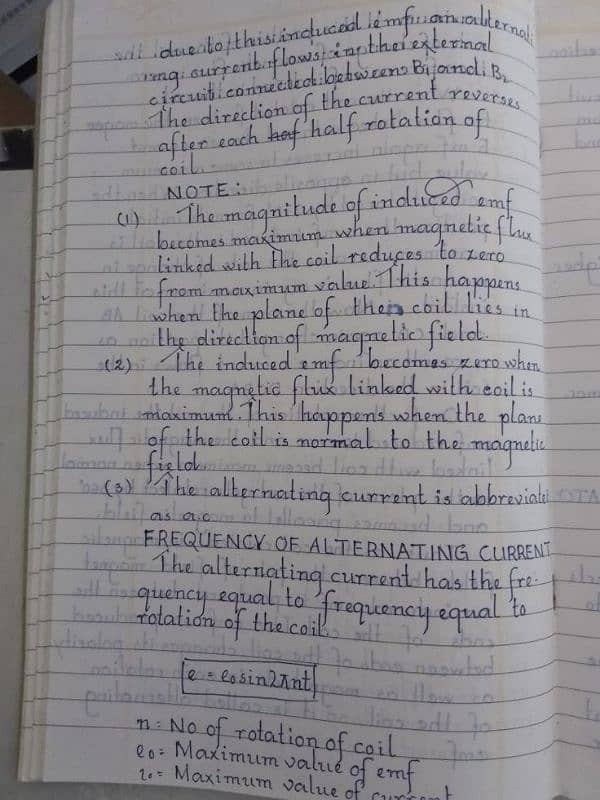 due to this induced emf an alternat-
ing current flows in the external
circuit connected between B1 and B2
The direction of the current reverses
after each haf half rotation of
coil.
NOTE:
(1) The magnitude of induced emf
becomes maximum when magnetic flux
linked with the coil reduces to zero
from maximum value. This happens
when the plane of the coil lies in
the direction of magnetic field.
(2) The induced emf becomes zero when
the magnetic flux linked with coil is
maximum. This happens when the plane
of the coil is normal to the magnetic
field.
(3) The alternating current is abbreviated
as a.c
FREQUENCY OF ALTERNATING CURRENT
The alternating current has the fre-
quency equal to frequency equal to
rotation of the coil.
e = e0 sin2πnt
n = No of rotation of coil
e0 = Maximum value of emf
i0 = Maximum value of current